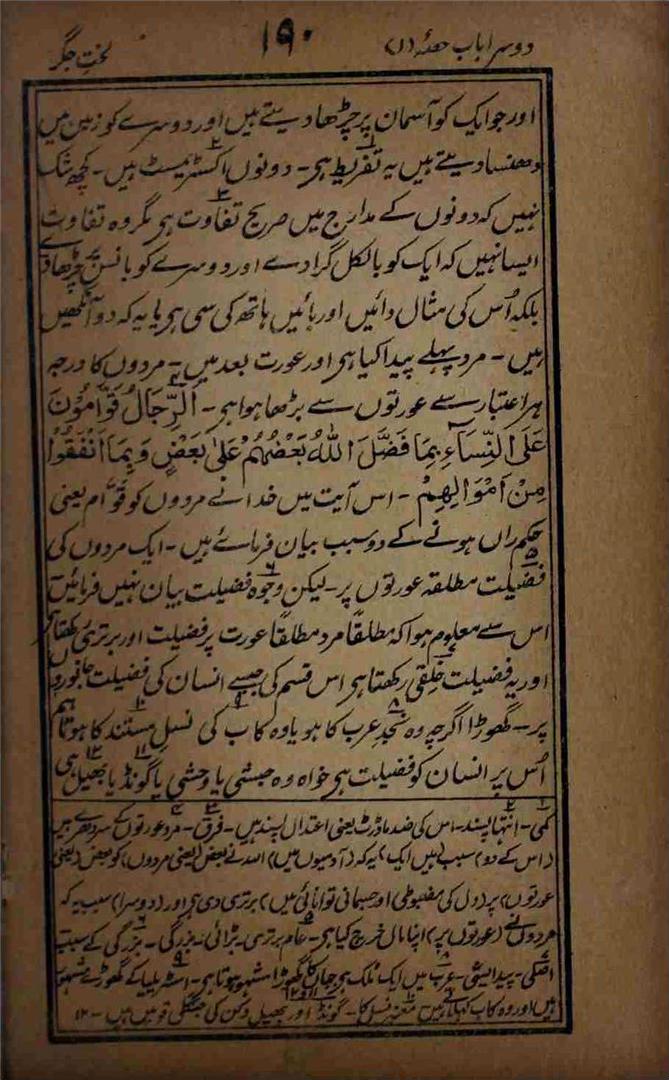 دوسرا باب حصّہ (۱) ۱۹۰ لختِ جگر
اور جو ایک کو آسمان پر چڑھا دیتے ہیں اور دوسرے کو زمین میں
دھنسا دیتے ہیں یہ تفریط ہی۔ دونوں اکسٹریمسٹ ہیں۔ کچھ شک
نہیں کہ دونوں کے مدارج میں صریح تفاوت ہی مگر وہ تفاوت
ایسا نہیں کہ ایک کو بالکل گرا دے اور دوسرے کو بانس پر چڑھا دے
بلکہ اُس کی مثال دائیں اور بائیں ہاتھ کی سی ہی یا یہ کہ دو آنکھیں
ہیں۔ مرد پہلے پیدا کیا ہی اور عورت بعد میں۔ مردوں کا درجہ
ہر اعتبار سے عورتوں سے بڑھا ہوا ہی۔ اَلرِّجَالُ قَوَّامُوْنَ
عَلَی النِّسَآءِ بِمَا فَضَّلَ اللّٰہُ بَعْضَہُمْ عَلٰی بَعْضٍ وَّبِمَا اَنْفَقُوْا
مِنْ اَمْوَالِہِمْ۔ اس آیت میں خدا نے مردوں کو قوّام یعنی
حکم راں ہونے کے دو سبب بیان فرمائے ہیں۔ ایک مردوں کی
فضیلت مطلقہ عورتوں پر۔ لیکن وجوہ فضیلت بیان نہیں فرمائیں
اس سے معلوم ہوا کہ مطلقاً مرد مطلقاً عورت پر فضیلت اور برتری رکھتا ہی
اور یہ فضیلت خلقی رکھتا ہی اس قسم کی جیسے انسان کی فضیلت جانوروں
پر۔ گھوڑا اگرچہ وہ نجدِ عرب کا ہو یا وہ کاب کی نسل مستند کا ہو تاہم
اُس پر انسان کو فضیلت ہی خواہ وہ حبشی یا وحشی یا گونڈ یا بھیل ہی
کمی۔ انتہا پسند۔ اس کی ضد ماڈرٹ یعنی اعتدال پسند ہیں۔ فرق۔ مرد عورتوں کے سردھرے ہیں
(اس کے دو) سبب ہیں ایک) یہ کہ (آدمیوں میں) اللہ نے بعض (یعنی مردوں) کو بعض (یعنی
عورتوں) پر (دل کی مضبوطی اور جسمانی توانائی میں) برتری دی ہی اور (دوسرا) سبب یہ کہ
مردوں نے (عورتوں پر) اپنا مال خرچ کیا ہی۔ عام برتری۔ بڑائی۔ بزرگی۔ بزرگی کے سبب
اصلی۔ پیدایشی۔ عرب میں ایک ملک ہی جہاں کا گھوڑا مشہور ہوتا ہی۔ اسٹریلیا کے گھوڑے مشہور
ہیں اور وہ کاب کہلاتے ہیں۔ معزز نسل کا۔ گونڈ اور بھیل دکن کی جنگلی قومیں ہیں۔ ۱۲